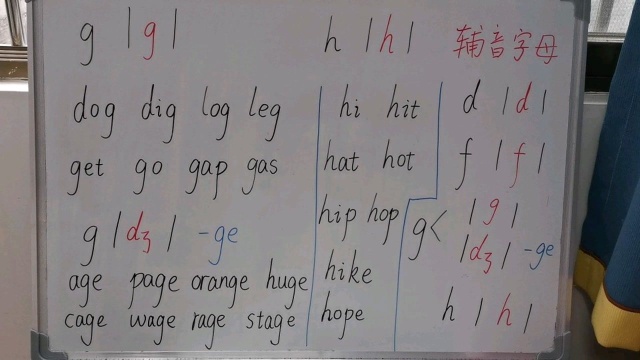 g |g|
dog dig log leg
get go gap gas
g |dʒ| -ge
age page orange huge
cage wage rage stage
h |h|
hi hit
hat hot
hip hop
hike
hope
辅音字母
d |d|
f |f|
g< |g|
|dʒ| -ge
h |h|